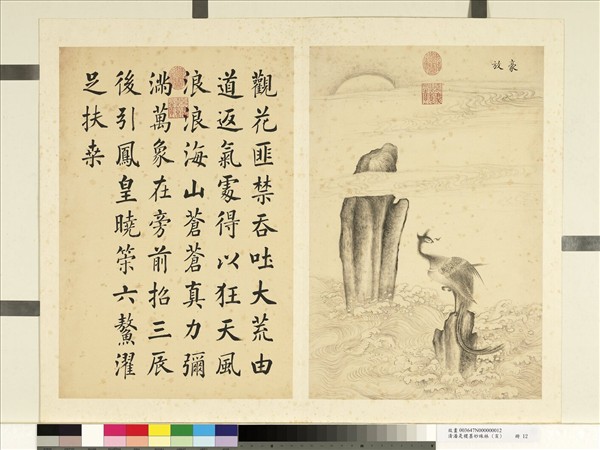 豪放
觀花匪禁吞吐大荒由
道返氣處得以狂天風
浪浪海山蒼蒼真力彌
滿萬象在旁前招三辰
後引鳳皇曉策六鰲濯
足扶桒
故畫 003647N000000012
冊 12